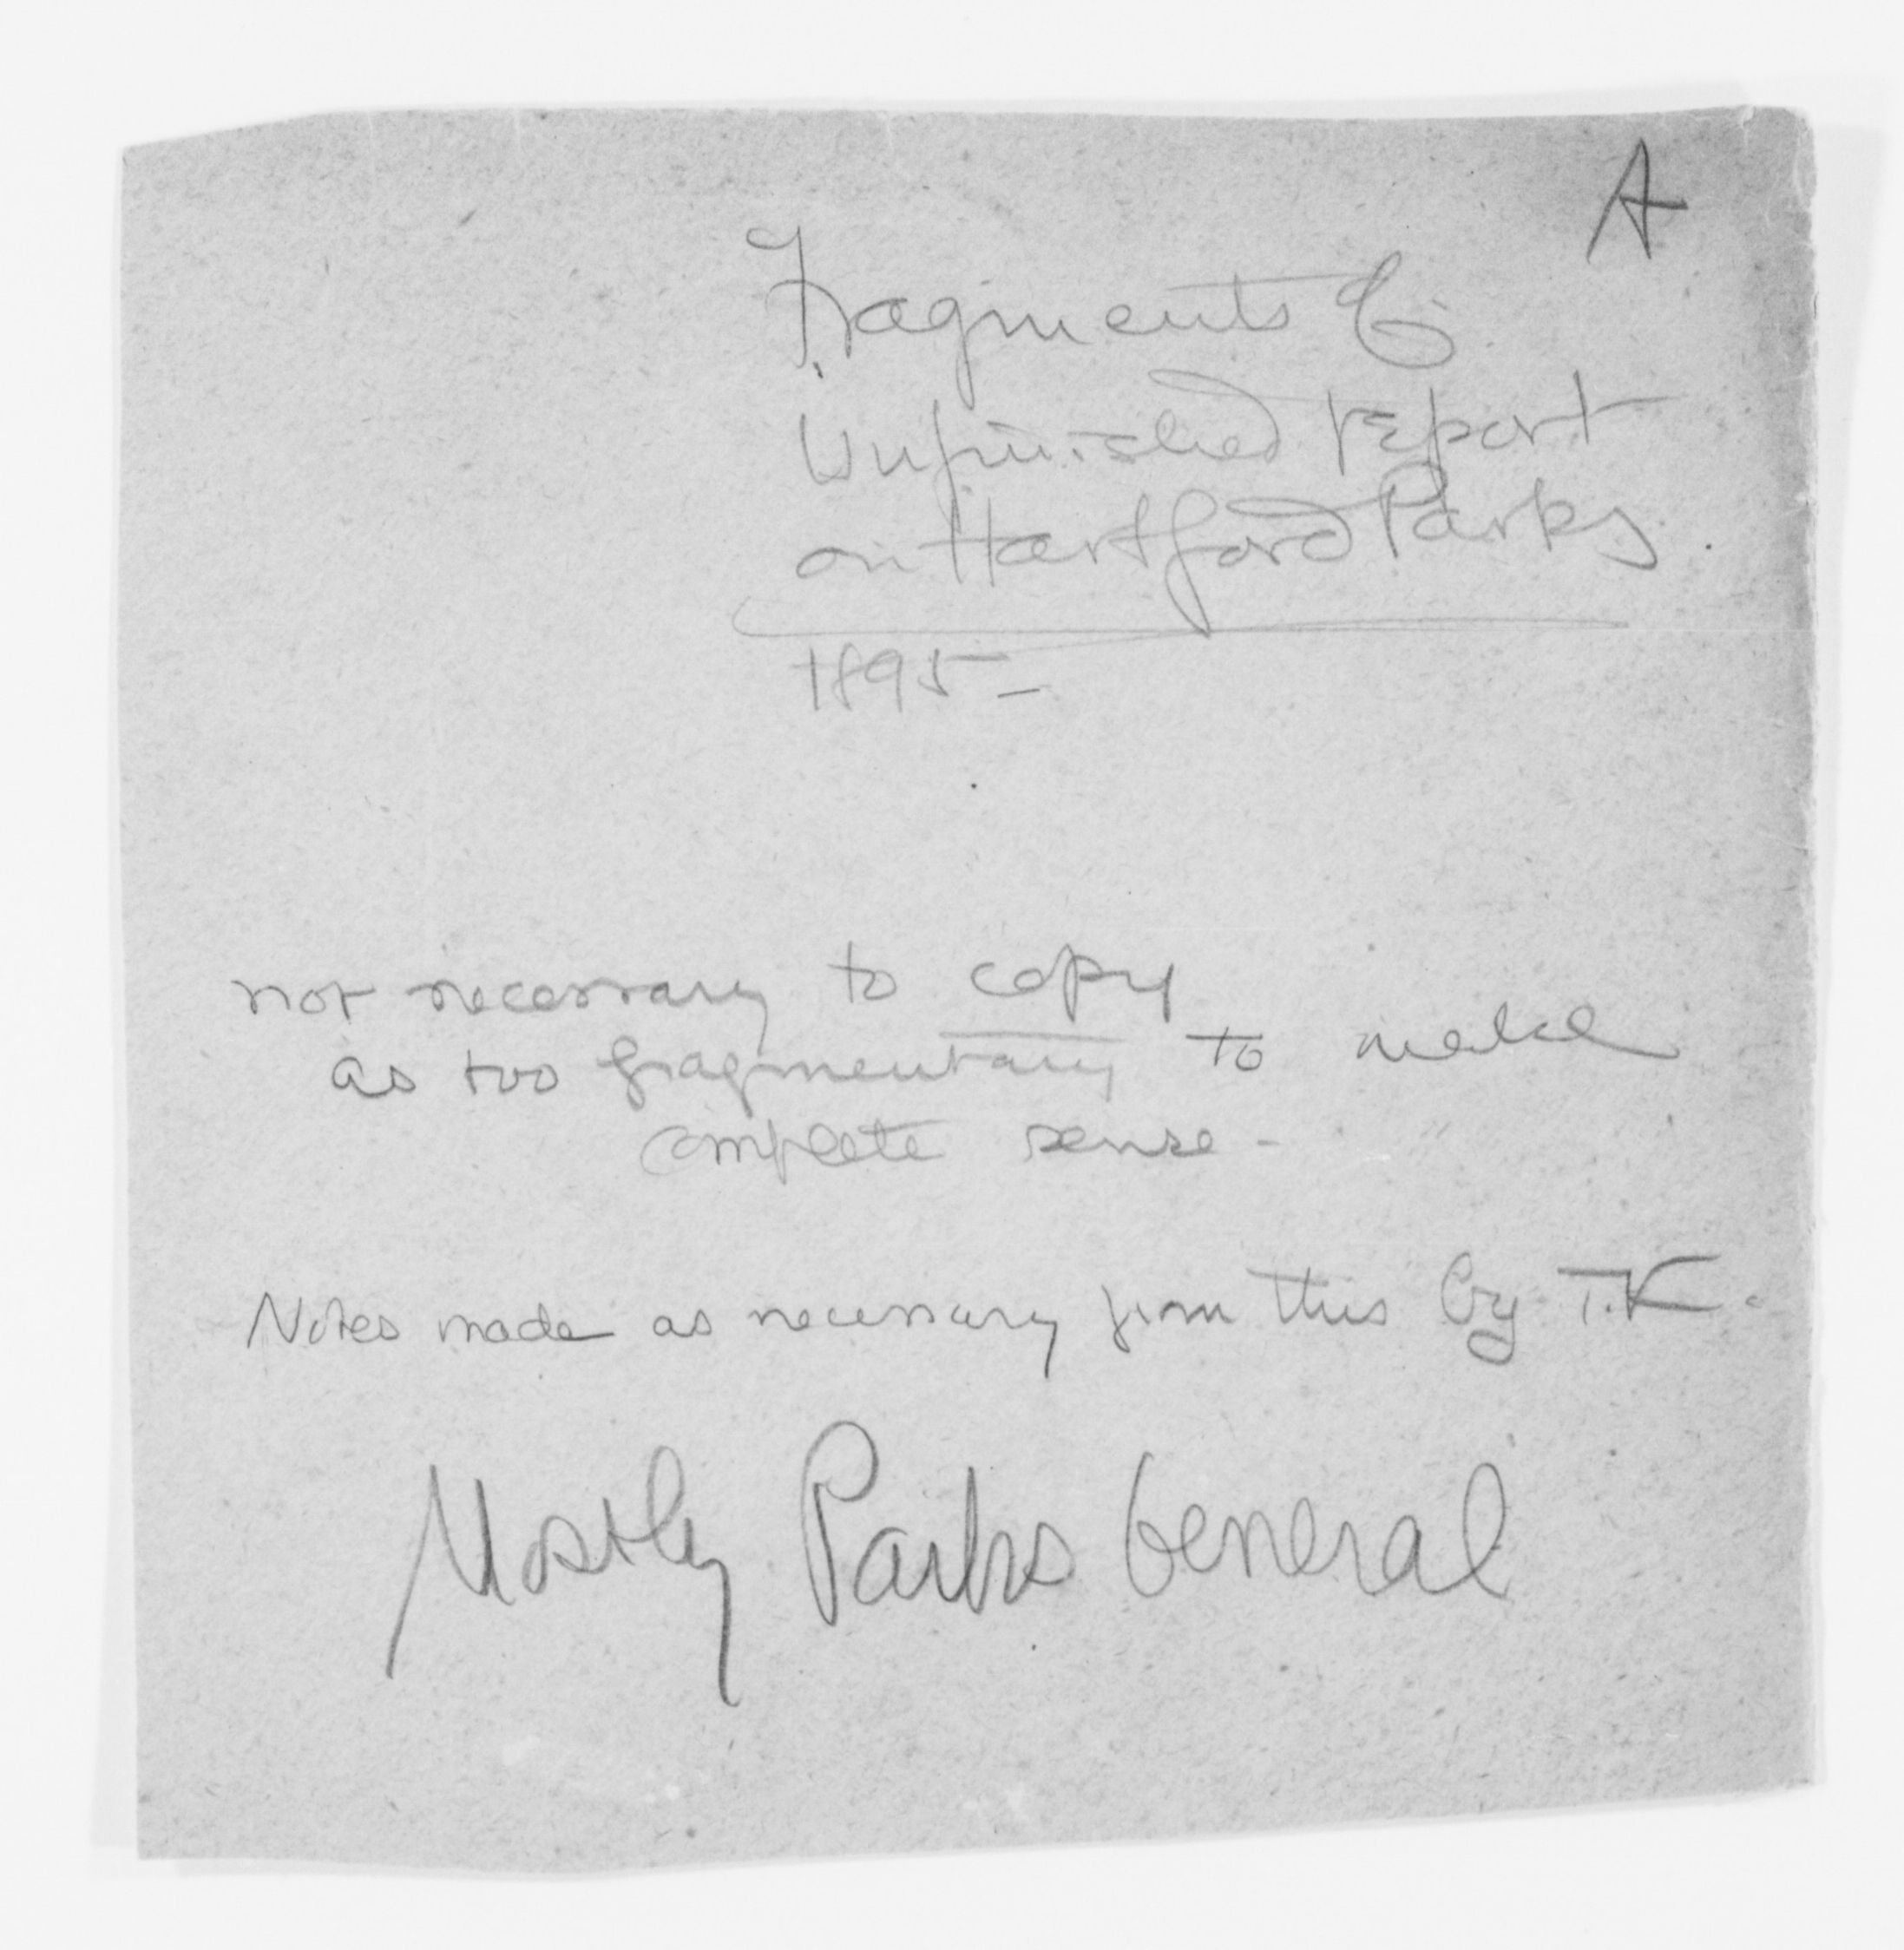 A
Fragments &
Unfinished report
on Hartford Parks.
1895 -
not necessary to copy
as too fragmentary to make
complete sense -
Notes made as necessary from this by T.K.
Mostly Parks General